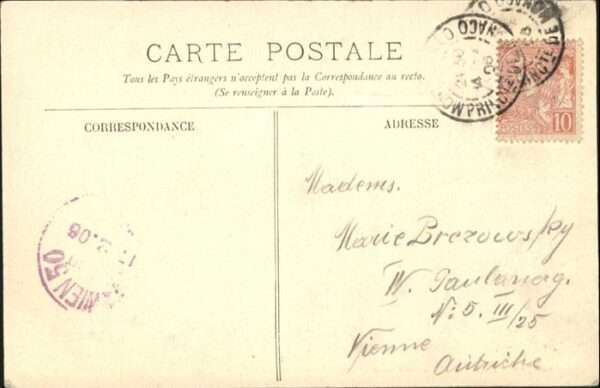 CARTE POSTALE
Tous les Pays étrangers n'acceptent pas la Correspondance au recto.
(Se renseigner à la Poste).
CORRESPONDANCE
ADRESSE
POSTES 10
MONACO
WIEN 50
Madems.
Marie Brezowsky
IV. Paulanerg.
No: 5. III/25
Vienne
Autriche